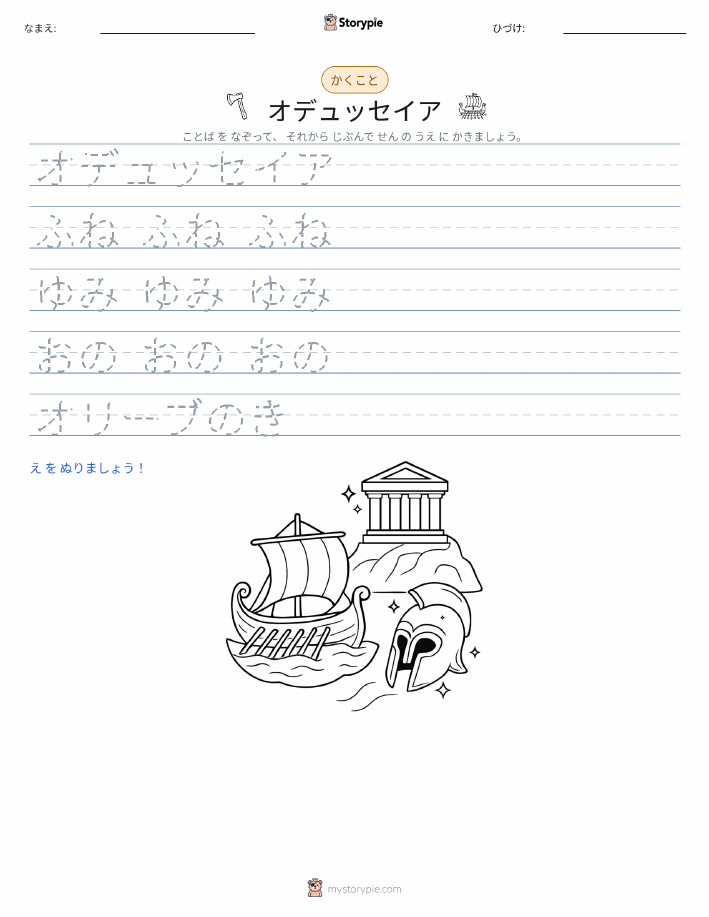 なまえ:
Storypie
ひづけ:
かくこと
オデュッセイア
ことば を なぞって、 それから じぶんで せん の うえ に かきましょう。
オデュッセイア
ふね ふね ふね
ゆみ ゆみ ゆみ
おの おの おの
オリーブのき
え を ぬりましょう！
mystorypie.com